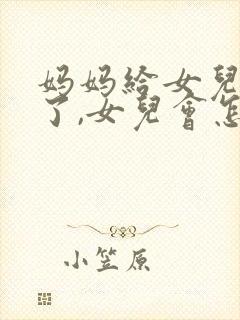 妈妈給女兒
了,女兒會怎
小笠原